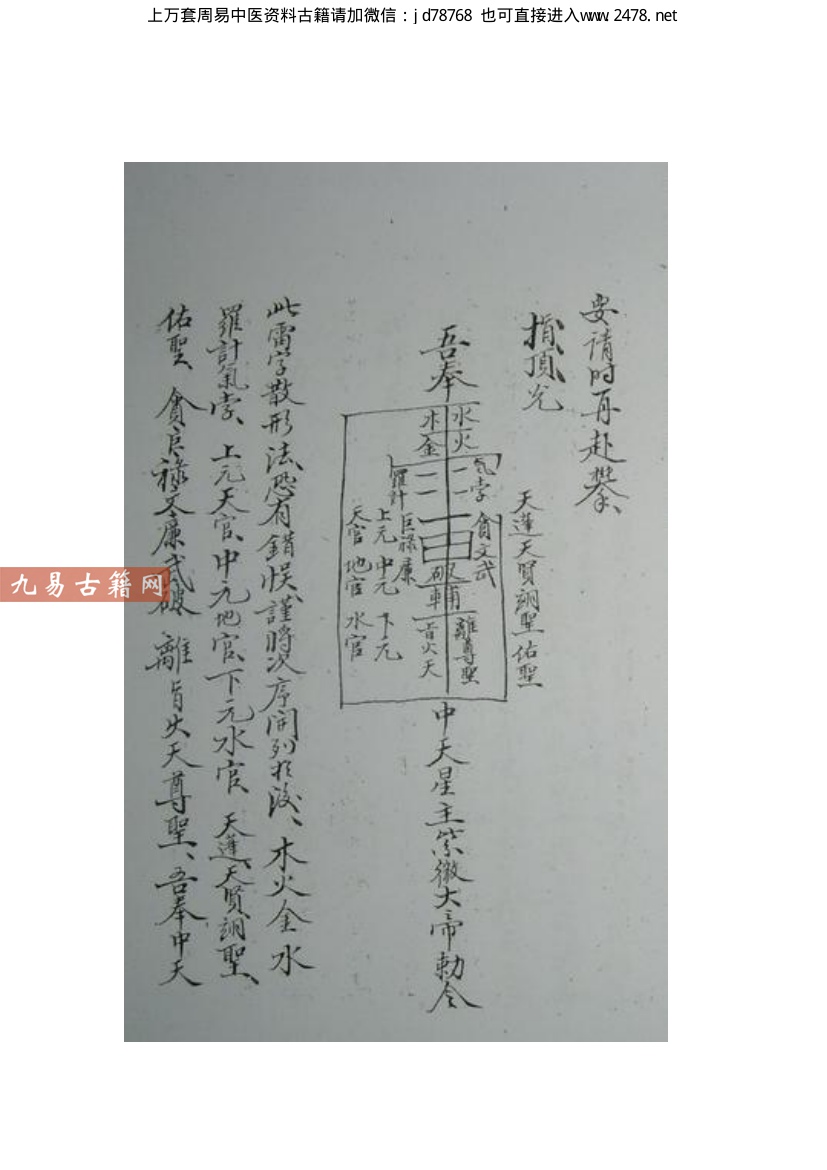 上万套周易中医资料古籍请加微信：jd78768 也可直接进入www.2478.net
要请时再赴攀、
指、頂、光
天蓬天賢翊聖佑聖
吾奉
水火
木金
氣孛
羅計
貪文武
巨祿廉
破
輔
離尊聖
旨火天
上元 中元 下元
天官 地官 水官
中天星主紫微大帝勅令
此雷字散形法、恐有錯悮、謹將次序開列於後、木火金水
羅計氣孛、上元天官、中元地官、下元水官、天蓬、天賢、翊聖、
佑聖、貪巨祿文廉武破 離旨火天尊聖、吾奉中天
九易古籍网